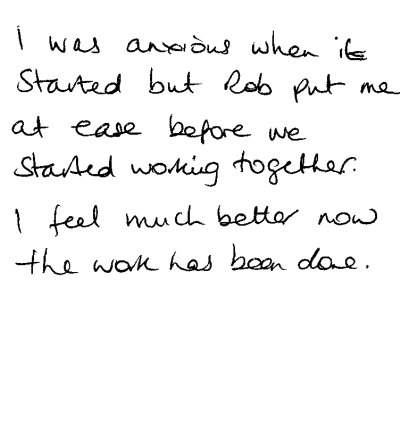 I was anxious when it
Started but Rob put me
at ease before we
started working together.
I feel much better now
the work has been done.